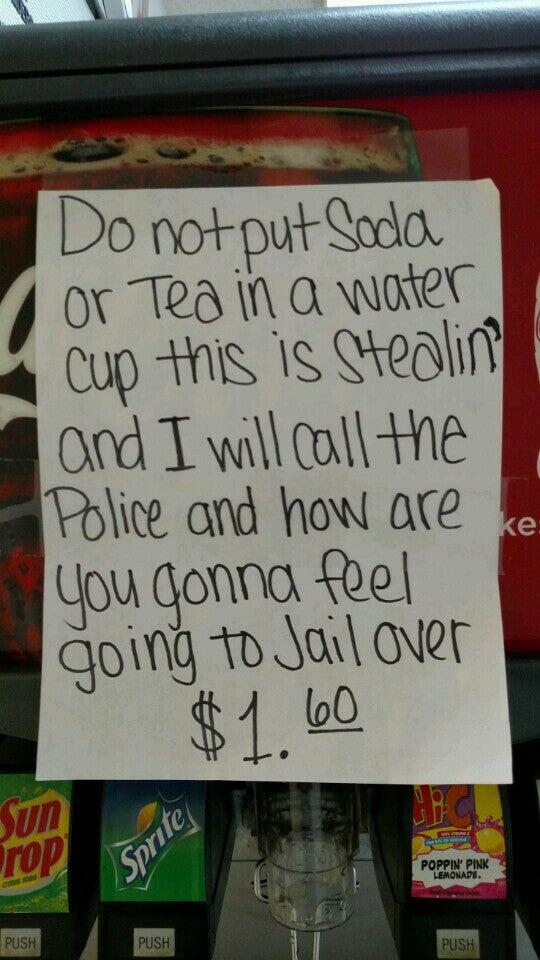 Do not put Soda
or Tea in a water
cup this is Stealin'
and I will call the
Police and how are
you gonna feel
going to Jail over
$1.60
ke
Sun
Drop
CITRUS SODA
Sprite
Hi-C
POPPIN' PINK
LEMONADE.
PUSH
PUSH
PUSH